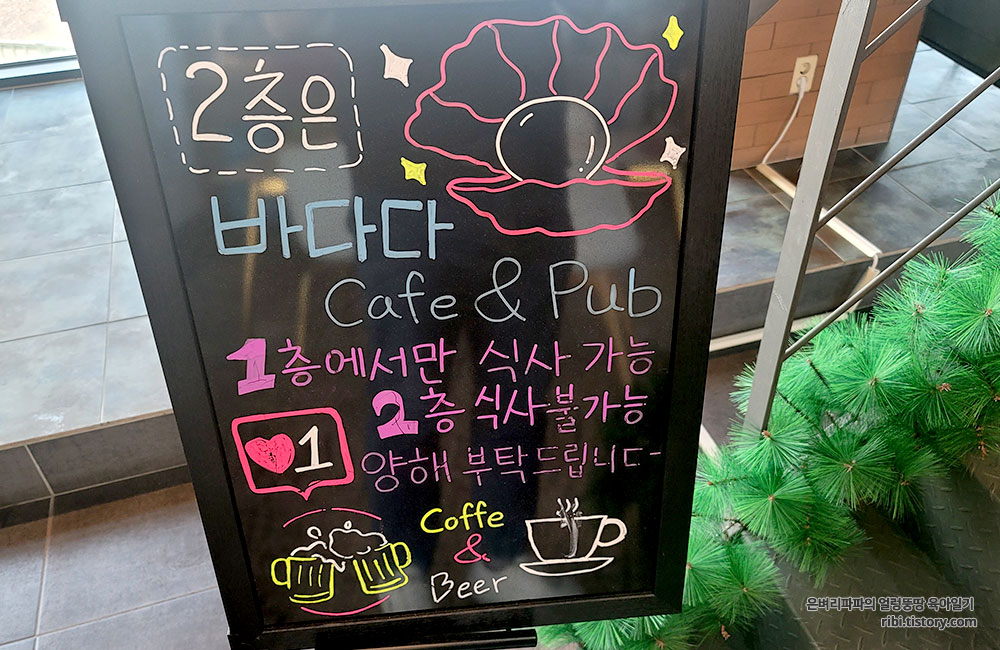 2층은
바다다
Cafe & Pub
1층에서만 식사 가능
2층 식사불가능
♥1
양해 부탁드립니다
Coffe
&
Beer
은벼리파파의 얼렁뚱땅 육아일기
ribi.tistory.com